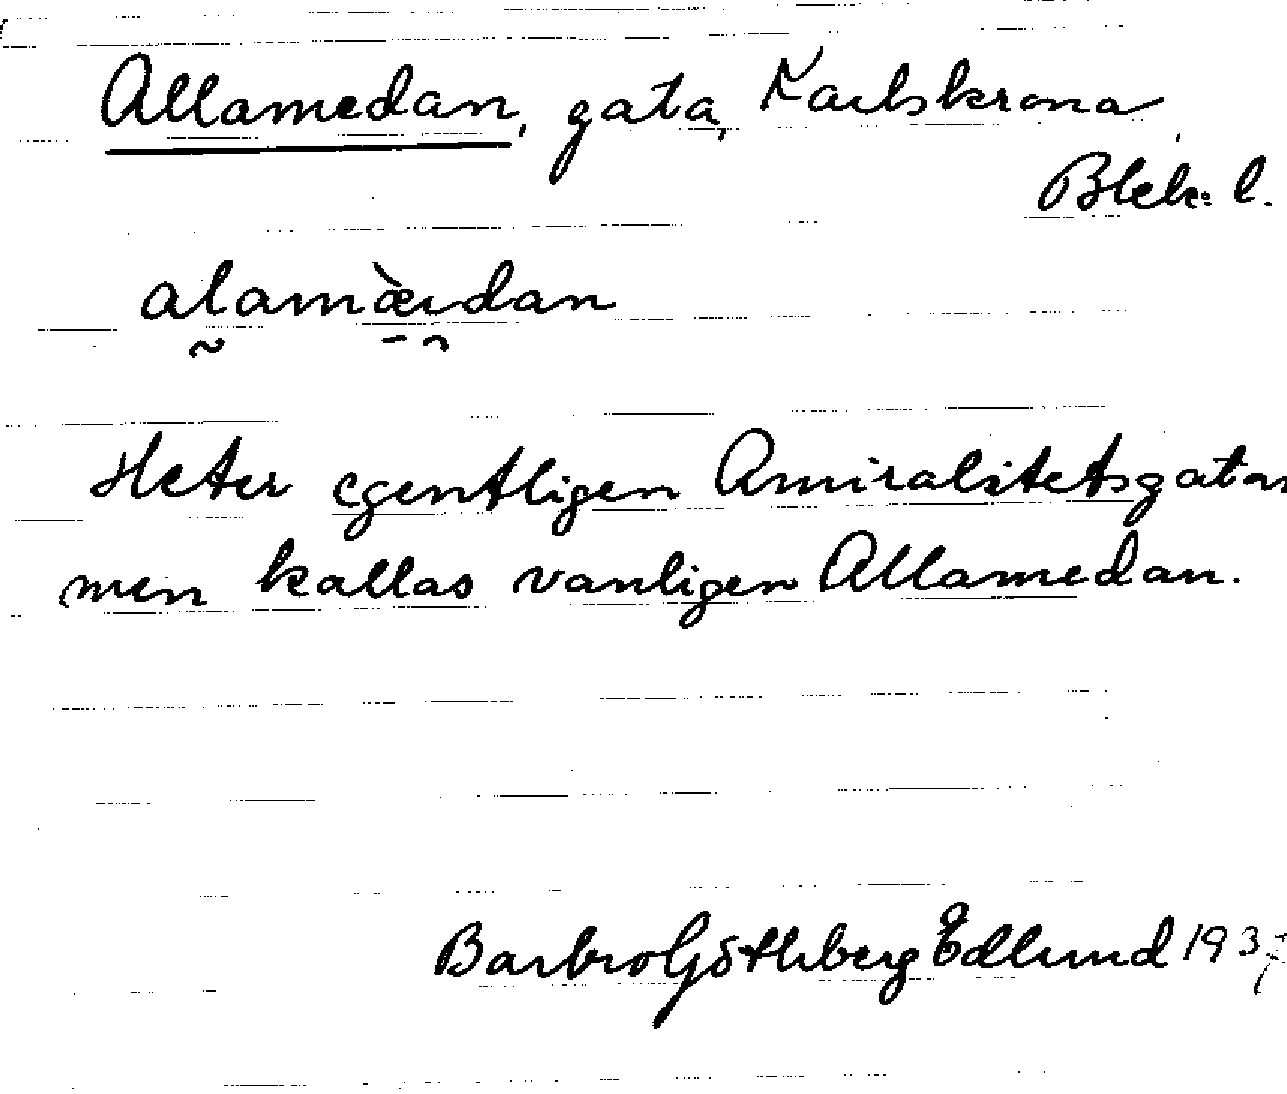 Allamedan, gata, Karlskrona,
Blek. l.
alamæ̀ıdan
Heter egentligen Amiralitetsgatan
men kallas vanligen Allamedan.
Barbro Göthberg Edlund 1937